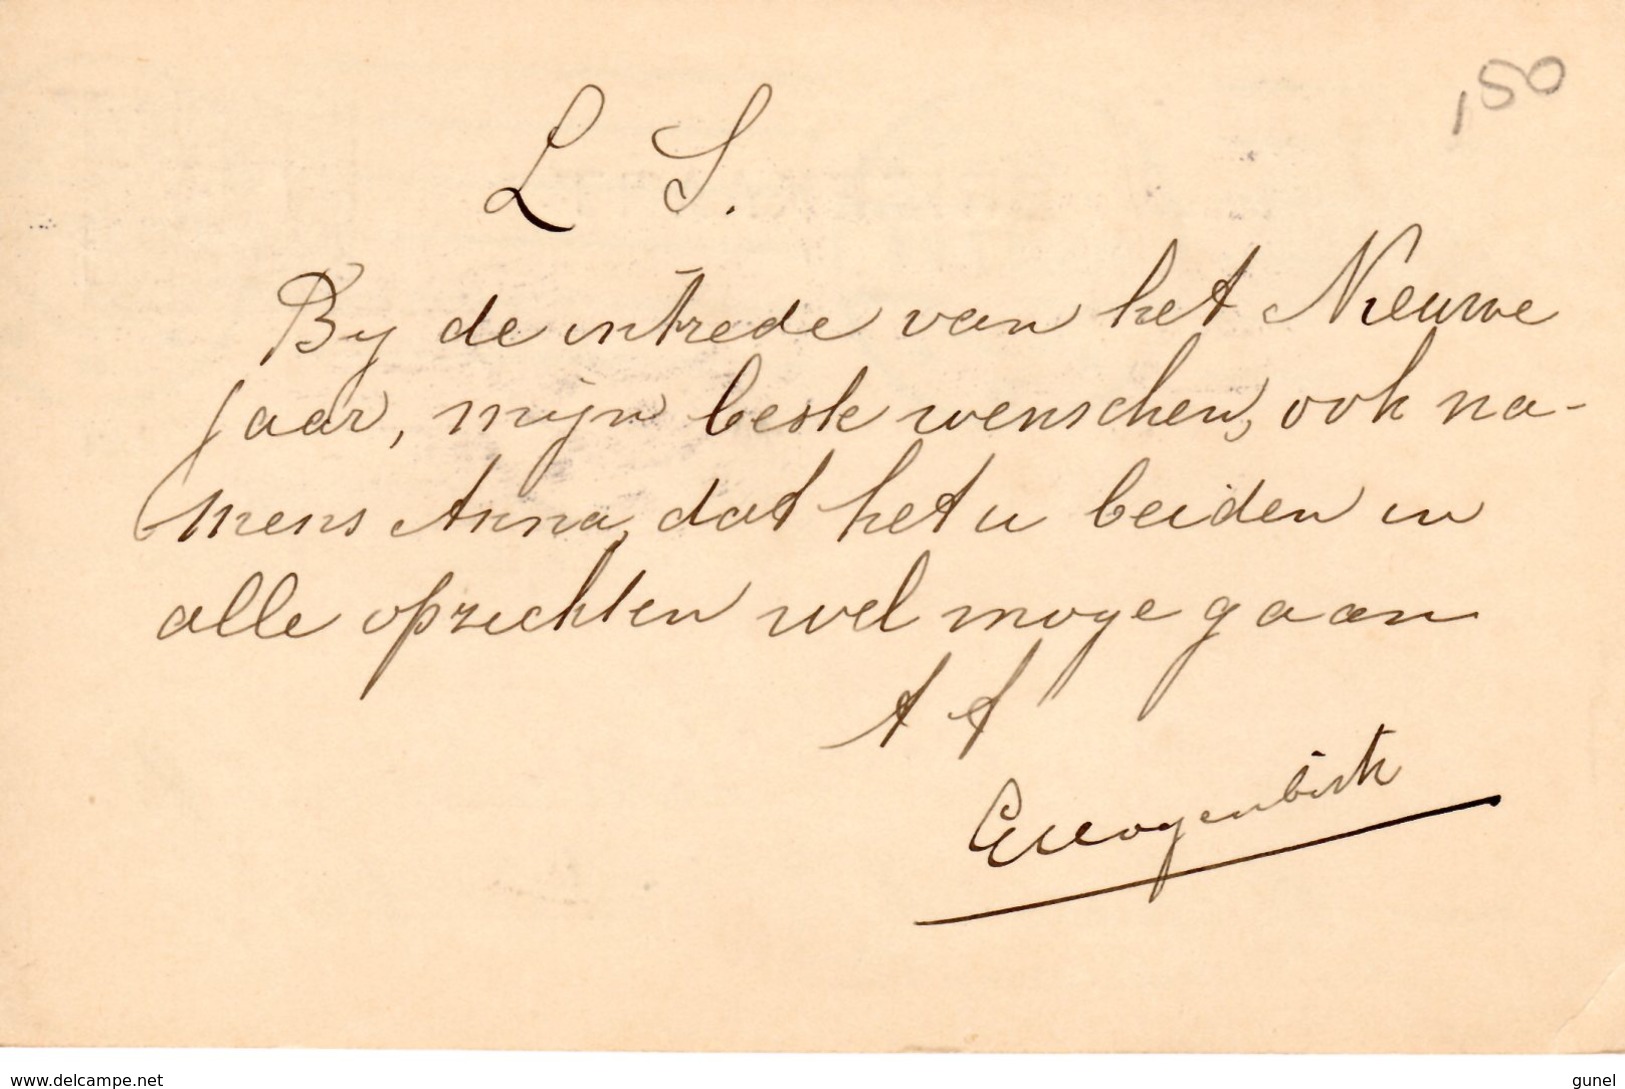 ,50
L S.
By de intrede van het Nieuwe
jaar, mijn beste wenschen, ook na-
mens Anna, dat het u beiden in
alle opzichten wel moge gaan
t t
www.delcampe.net
gunel